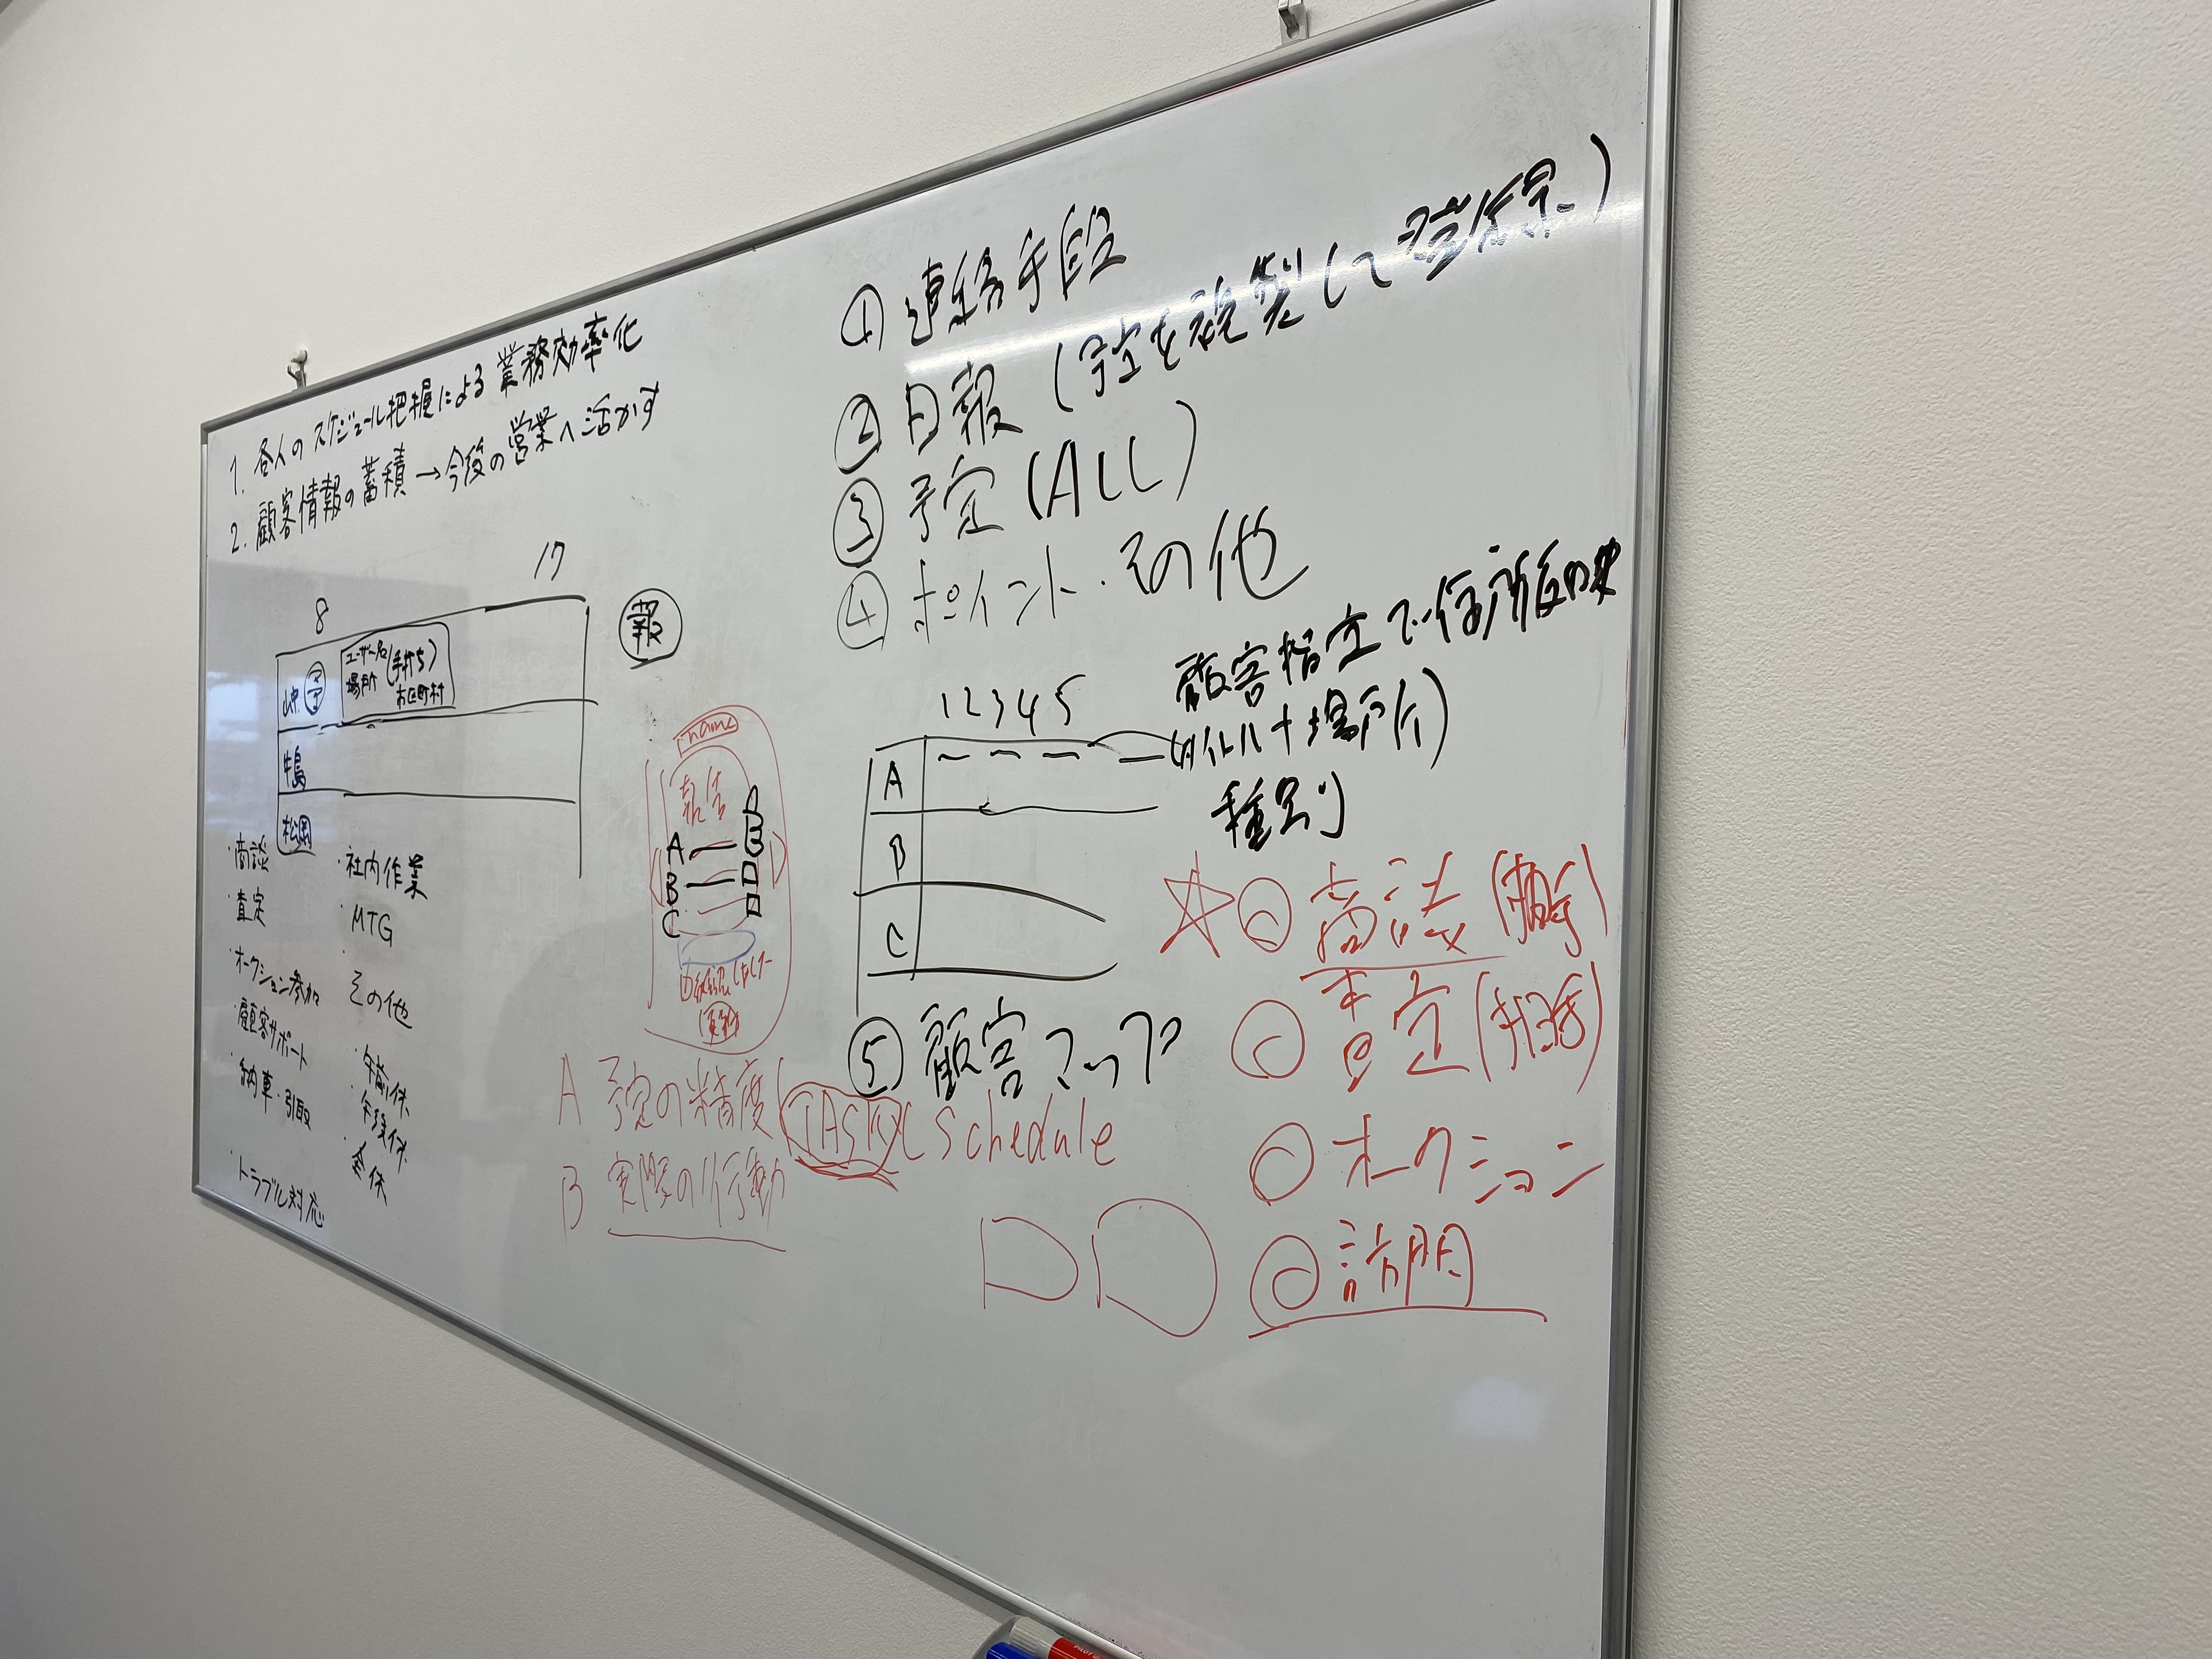 1. 各人のスケジュール把握による業務効率化
2. 顧客情報の蓄積→今後の営業へ活かす
8
17
予
ユーザー名(手打ち)
場所 市区町村
牛島
松岡
報
・商談
・査定
・オークション参加
・顧客サポート
・納車・引取
・トラブル対応
・社内作業
・MTG
・その他
・午前休
午後休
・全休
name
報告
A
B
C
A 予定の精度 (TASK Schedule
B 実際の行動
① 連絡手段
② 日報 (予定を複製して
③ 予定(ALL)
④ ポイント・その他
1 2 3 4 5
A
B
C
顧客指定で住所反映
(タイトル+場所)
種別
⑤ 顧客マップ
☆ 商談
査定
オークション
訪問